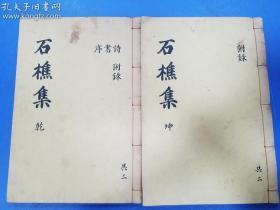 孔夫子旧书网
石樵集
乾
詩書序
附錄
共二
石樵集
坤
附錄
共二